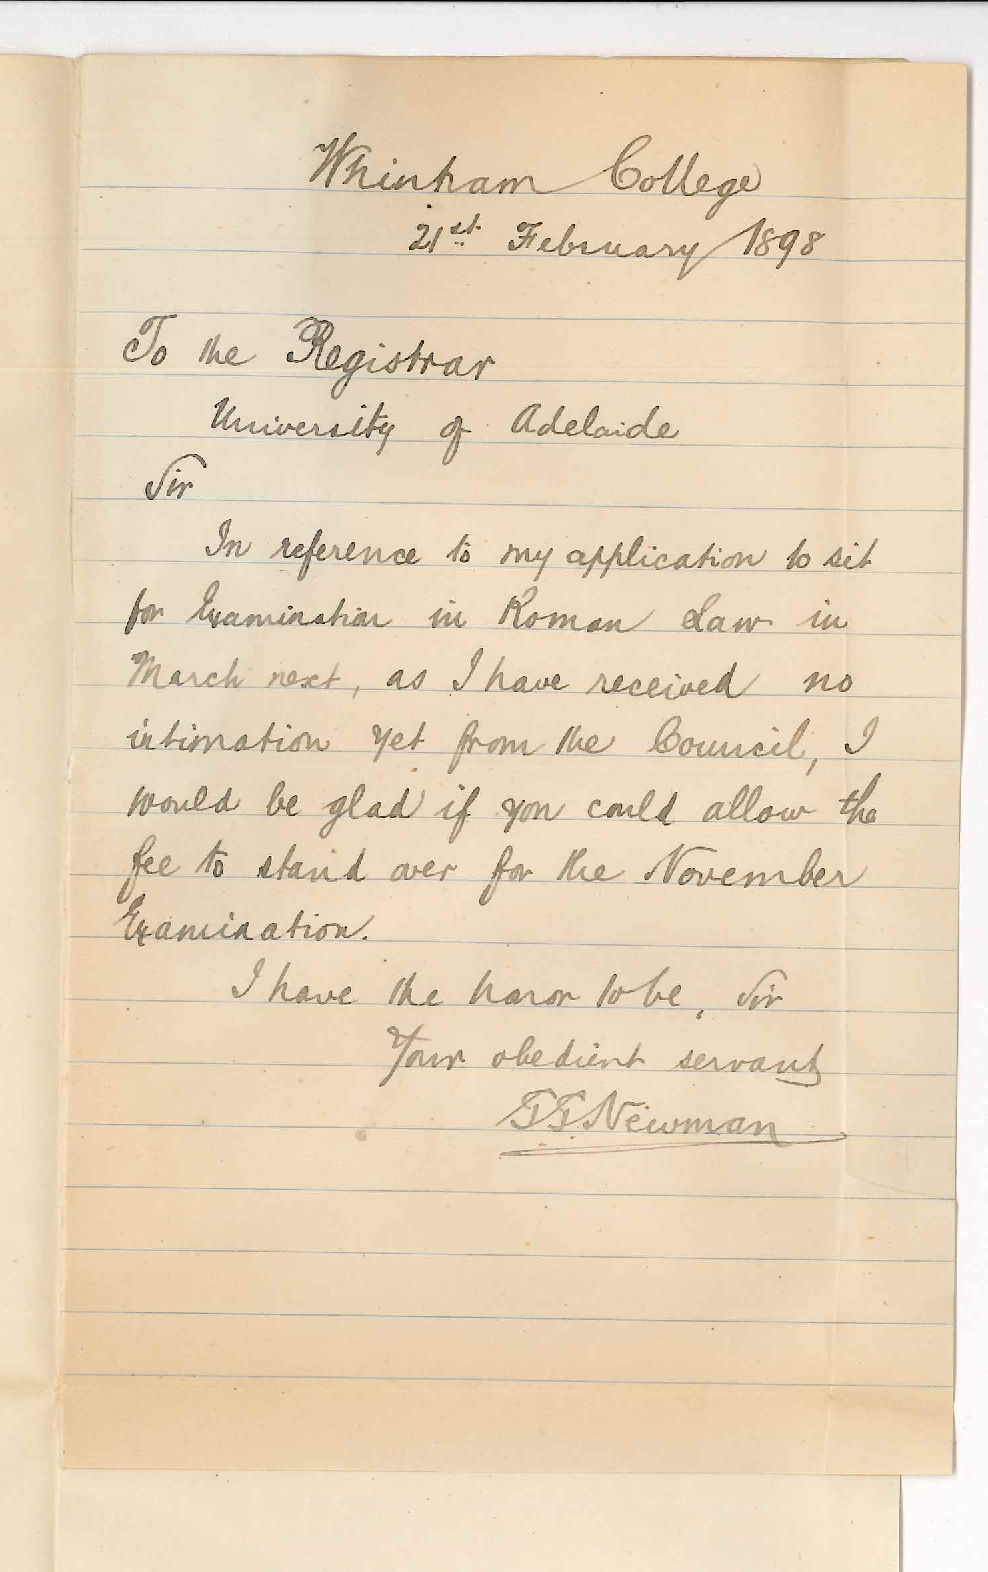 Whinham College
21st February 1898
To the Registrar
University of Adelaide
Sir
In reference to my application to sit
for Examination in Roman Law in
March next, as I have received no
intimation yet from the Council, I
would be glad if you could allow the
fee to stand over for the November
Examination.
I have the honor to be, Sir
Your obedient servant
G G Newman